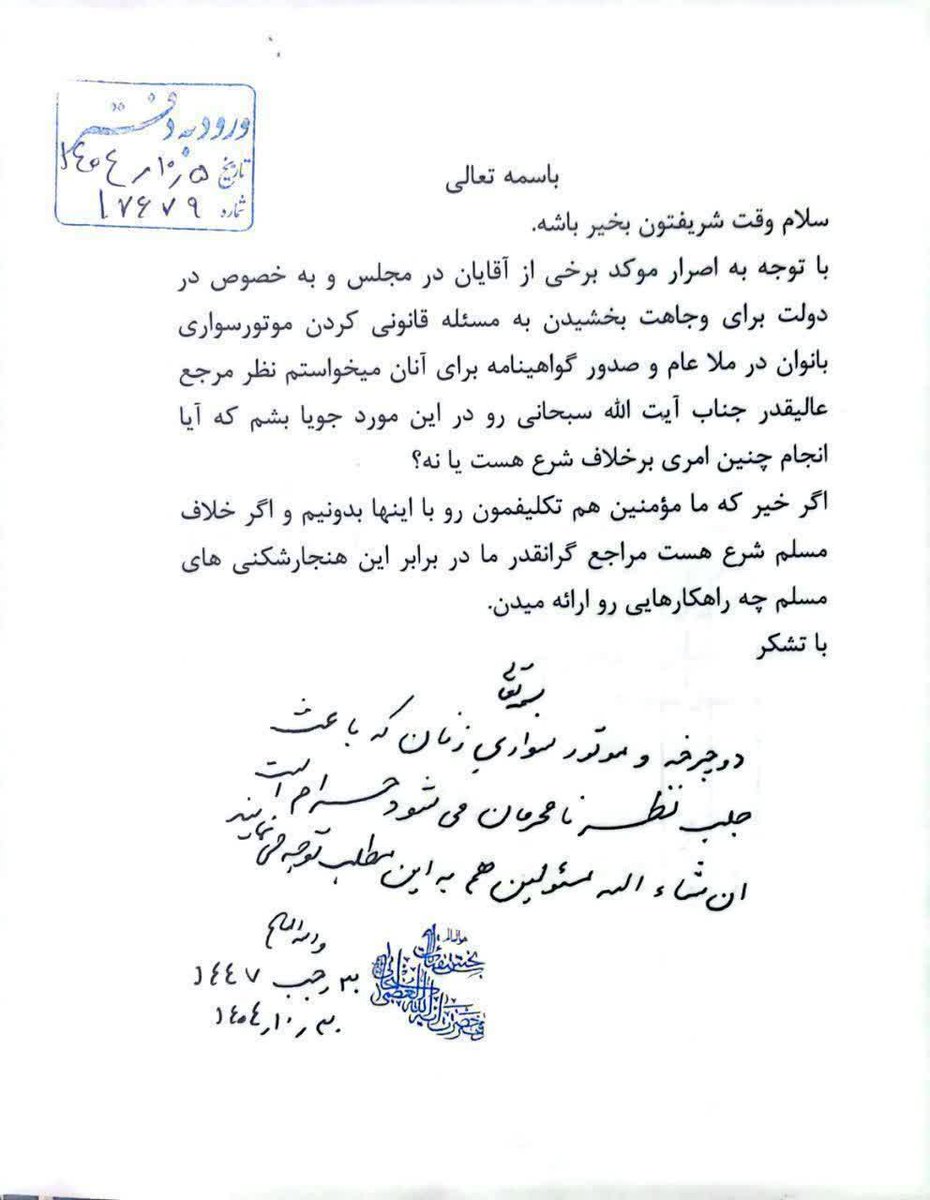 ورود به دفتر
تاریخ ۱۴۰۴ر۱۰ر۵
شماره ۱۷۶۷۹
باسمه تعالی
سلام وقت شریفتون بخیر باشه.
با توجه به اصرار موکد برخی از آقایان در مجلس و به خصوص در
دولت برای وجاهت بخشیدن به مسئله قانونی کردن موتورسواری
بانوان در ملا عام و صدور گواهینامه برای آنان میخواستم نظر مرجع
عالیقدر جناب آیت الله سبحانی رو در این مورد جویا بشم که آیا
انجام چنین امری برخلاف شرع هست یا نه؟
اگر خیر که ما مؤمنین هم تکلیفمون رو با اینها بدونیم و اگر خلاف
مسلم شرع هست مراجع گرانقدر ما در برابر این هنجارشکنی های
مسلم چه راهکارهایی رو ارائه میدن.
با تشکر
بسمه تعالی
دوچرخه و موتور سواری زنان که باعث
جلب نظر نامحرمان می شود حرام است
ان شاء الله مسئولین هم به این مطلب توجه می نمایند
والله العالم
رجب ۱۴۴۷